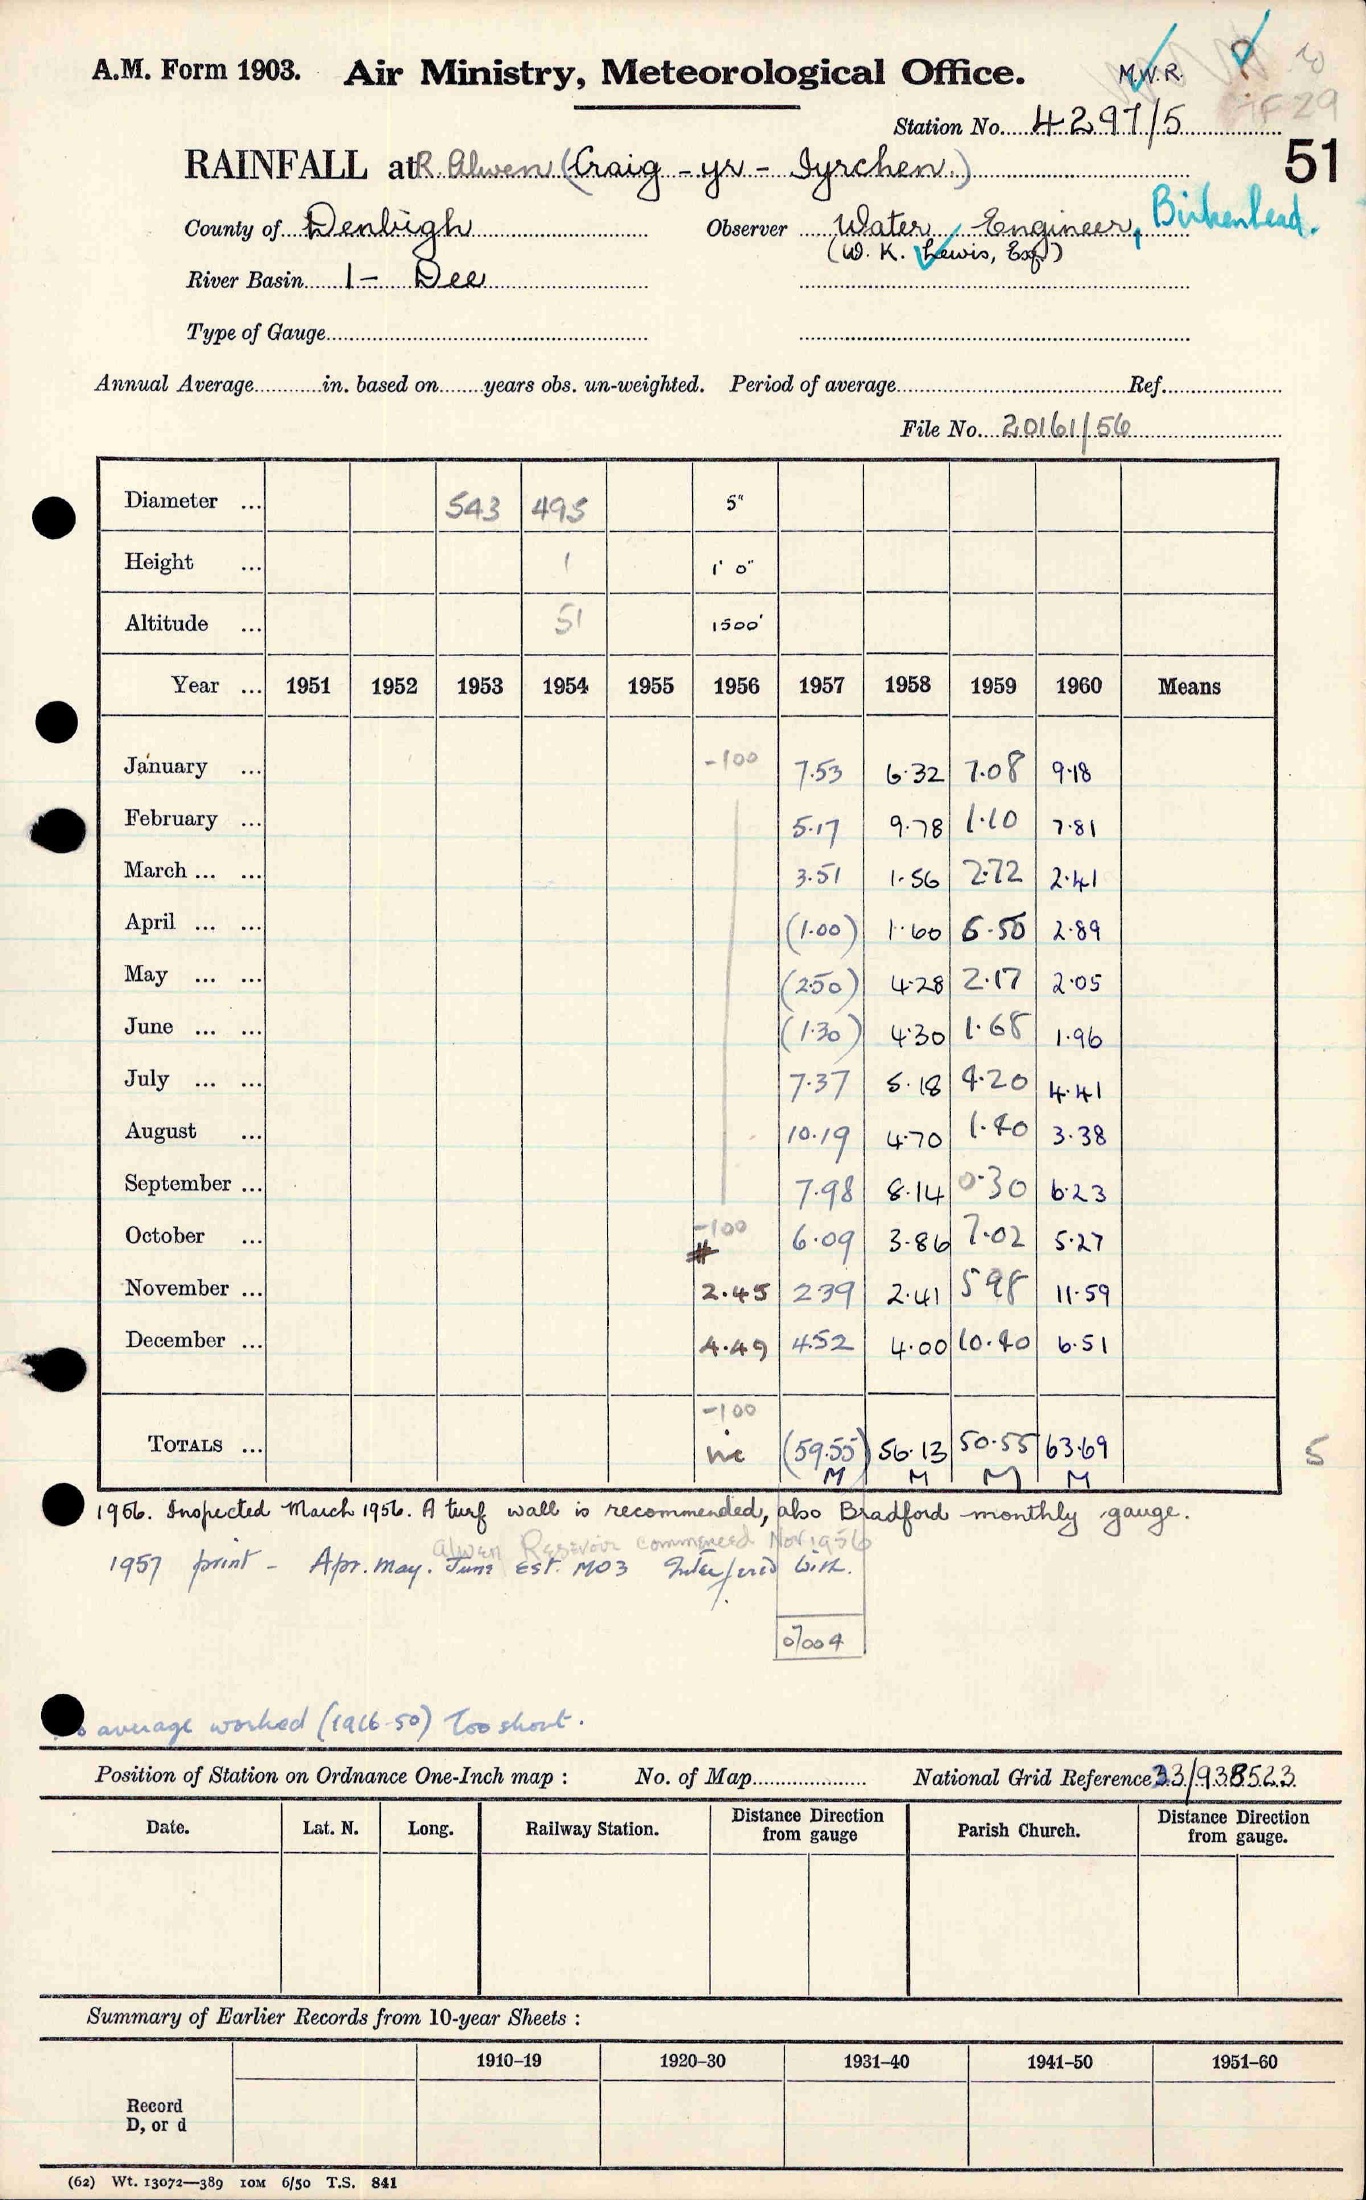 A.M. Form 1903. Air Ministry, Meteorological Office. M.W.R.
Station No. 4297/5
51
RAINFALL at R. Alwen (Craig - yr - Iyrchen.)
County of Denbigh Observer Water Engineer, Birkenhead.
(W. K. Lewis, Esq.)
River Basin 1 - Dee
Type of Gauge
Annual Average in. based on years obs. un-weighted. Period of average Ref.
File No. 20161/56
Diameter ... 543 495 5"
Height ... 1 1' 0"
Altitude ... 51 1500'
Year ... 1951 1952 1953 1954 1955 1956 1957 1958 1959 1960 Means
January ... -100 7.53 6.32 7.08 9.18
February ... 5.17 9.78 1.10 7.81
March ... ... 3.51 1.56 2.72 2.41
April ... ... (1.00) 1.60 2.89
May ... ... (2.50) 4.28 2.17 2.05
June ... ... (1.30) 4.30 1.68 1.96
July ... ... 7.37 5.18 4.20 4.41
August ... 10.19 4.70 1.40 3.38
September ... 7.98 8.14 0.30 6.23
October ... -100 # 6.09 3.86 7.02 5.27
November ... 2.45 2.39 2.41 5.98 11.59
December ... 4.49 4.52 4.00 10.40 6.51
-100
TOTALS ... inc (59.55) 56.13 50.55 63.69 5
M M M M
1956. Inspected March 1956. A turf wall is recommended, also Bradford monthly gauge.
Alwen Reservoir commenced Nov 1956
1957 print - Apr. May. June Est. MO3 Interfered with.
07004
average worked (1916-50) Too short.
Position of Station on Ordnance One-Inch map : No. of Map National Grid Reference 33/935523
Date. Lat. N. Long. Railway Station. Distance Direction from gauge Parish Church. Distance Direction from gauge.
Summary of Earlier Records from 10-year Sheets :
1910–19 1920–30 1931–40 1941–50 1951–60
Record
D, or d
(62) Wt. 13072—389 10M 6/50 T.S. 841